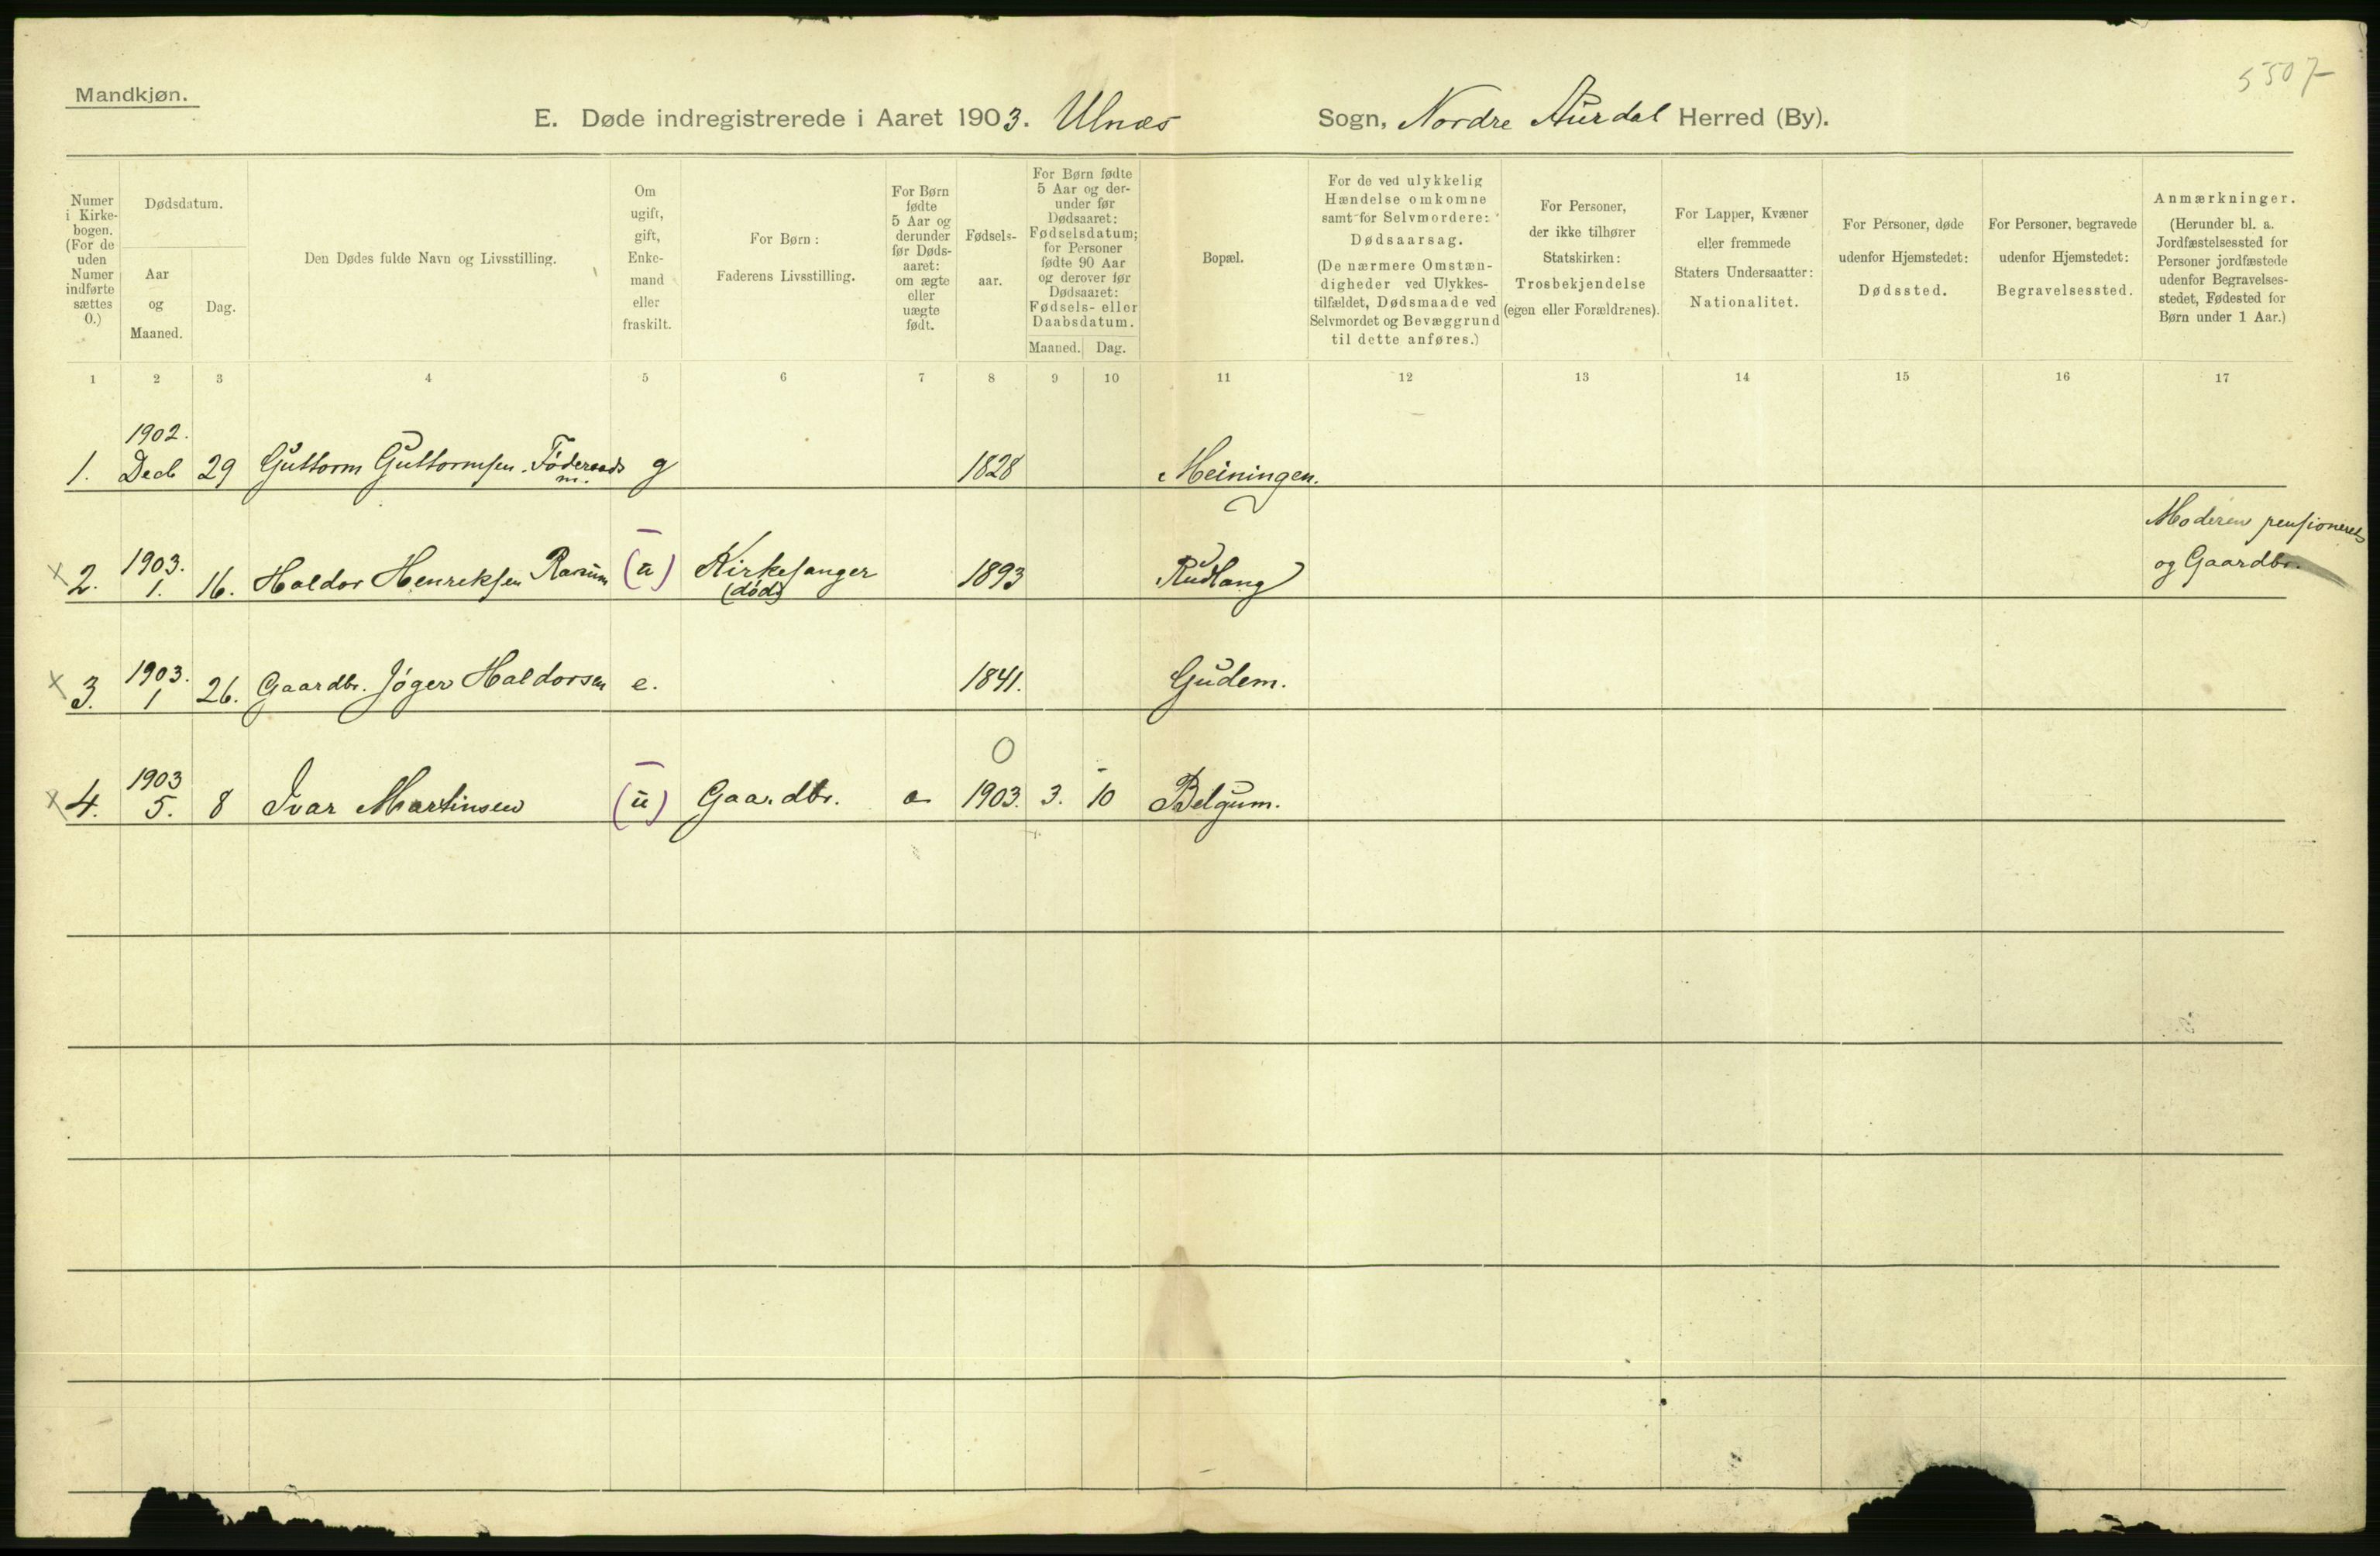 5507
Mandkjøn.
E. Døde indregistrerede i Aaret 1903. Ulnæs Sogn, Nordre Aurdal Herred (By).
Numer
i Kirke-
bogen.
(For de
uden
Numer
indførte
sættes
0.)
Dødsdatum.
Aar
og
Maaned.
Dag.
Den Dødes fulde Navn og Livsstilling.
Om
ugift,
gift,
Enke-
mand
eller
fraskilt.
For Børn:
Faderens Livsstilling.
For Børn
fødte
5 Aar og
derunder
før Døds-
aaret:
om ægte
eller
uægte
født.
Fødsels-
aar.
For Børn fødte
5 Aar og der-
under før
Dødsaaret:
Fødselsdatum;
for Personer
fødte 90 Aar
og derover før
Dødsaaret:
Fødsels- eller
Daabsdatum.
Maaned. Dag.
Bopæl.
For de ved ulykkelig
Hændelse omkomne
samt for Selvmordere:
Dødsaarsag.
(De nærmere Omstæn-
digheder ved Ulykkes-
tilfældet, Dødsmaade ved
Selvmordet og Bevæggrund
til dette anføres.)
For Personer,
der ikke tilhører
Statskirken:
Trosbekjendelse
(egen eller Forældrenes).
For Lapper, Kvæner
eller fremmede
Staters Undersaatter:
Nationalitet.
For Personer, døde
udenfor Hjemstedet:
Dødssted.
For Personer, begravede
udenfor Hjemstedet:
Begravelsessted.
Anmærkninger.
(Herunder bl. a.
Jordfæstelsessted for
Personer jordfæstede
udenfor Begravelses-
stedet, Fødested for
Børn under 1 Aar.)
1 2 3 4 5 6 7 8 9 10 11 12 13 14 15 16 17
1902.
1. Decb 29 Guttorm Guttormsen. Föderaads g 1828 Meiningen.
m.
Moderen pensioneret
1903.
x 2. 1. 16. Haldor Henriksen Ranum (u) Kirkesanger 1893 Rudlang og Gaardbr.
(død)
1903.
x 3. 1 26. Gaardbr. Jöger Haldorsen e. 1841. Gudem.
0
1903
x 4. 5. 8 Ivar Martinsen (u) Gaardbr. e 1903. 3. 10 Belgum.